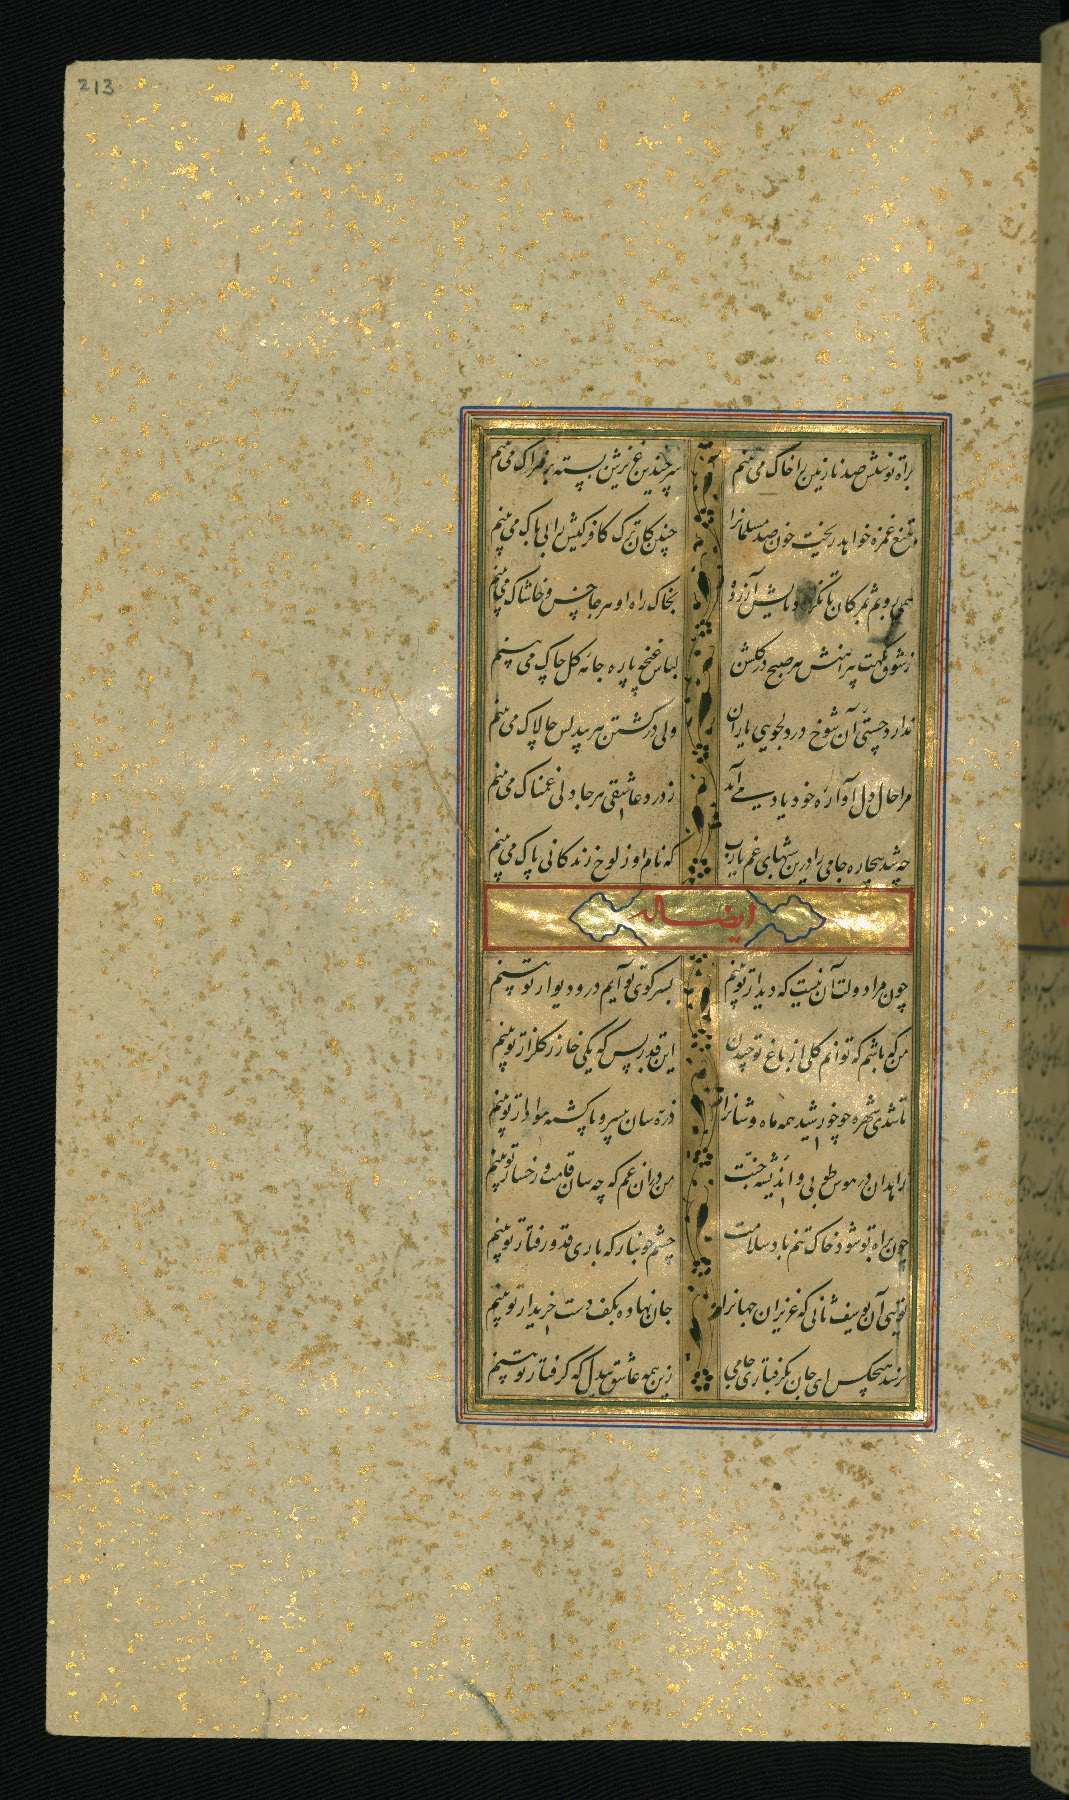 213
براه توسنش صد نازنین را خاک می بینم سر چندین عزیزش بسته بر فتراک می بینم
بتیغ غمزه خواهد ریخت خون صد مسلمانرا چنین کان ترک کافر کیش را بی باک می بینم
همی روبم بمژگان تا نگردد پایش آزرده بخاک راه او هر جا خس و خاشاک می بینم
ز شوق نکهت پیراهنش هر صبح در گلشن لباس غنچه پاره جامه گل چاک می بینم
ندارد چستی آن شوخ در دلجویی یاران ولی در کشتن هر بیدلش چالاک می بینم
مرا حال دل آواره خود یاد می آید ز درد عاشقی هر جا دلی غمناک می بینم
چه شد بیچاره جامی را درین شبهای غم یارب که نام او ز لوح زندگانی پاک می بینم
ایضا له
چون مرا دولت آن نیست که دیدار تو بینم بسر کوی تو آیم در و دیوار تو بینم
من که باشم که توانم گلی از باغ تو چیدن این قدر بس که یکی خار ز گلزار تو بینم
تا شدی شهره چو خورشید همه ماه وشانرا ذره سان بی سر و پا گشته هوادار تو بینم
زاهدان در هوس طوبی و اندیشه جنت من در آن غم که چه سان قامت و رخسار تو بینم
چون براه تو شود خاک تنم باد سلامت چشم خونبار که باری قد و رفتار تو بینم
تویی آن یوسف ثانی که عزیزان جهانرا جان نهاده بکف دست خریدار تو بینم
نرسد هیچکس ای جان بگرفتاری جامی زین همه عاشق بیدل که گرفتار تو بینم